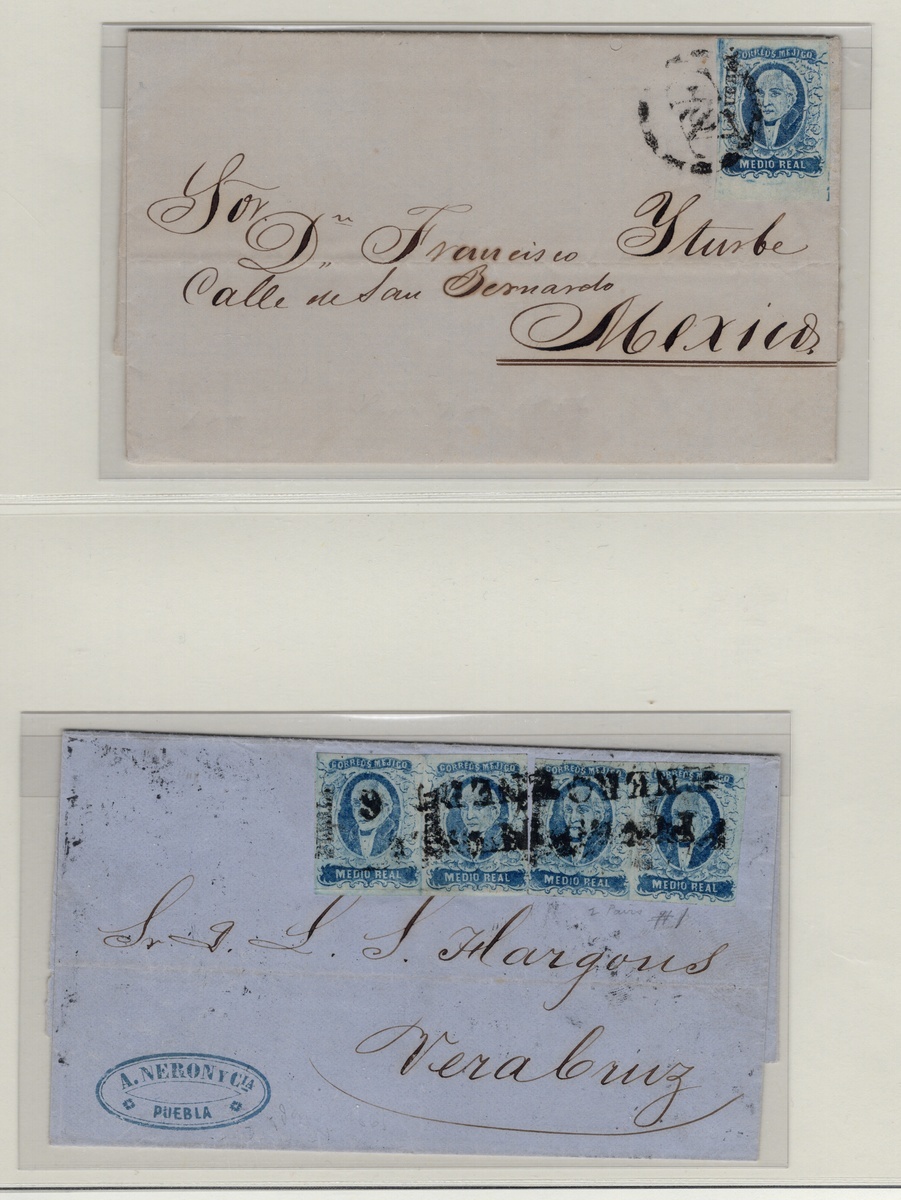 CORREOS MEJICO
MEDIO REAL
Sor Dn Francisco Yturbe
Calle de San Bernardo
Mexico
CORREOS MEJICO CORREOS MEJICO CORREOS MEJICO CORREOS MEJICO
MEDIO REAL MEDIO REAL MEDIO REAL MEDIO REAL
2 Pairs #1
Sr D. L. S. Hargous
Vera Cruz
A. NERON Y CIA
PUEBLA